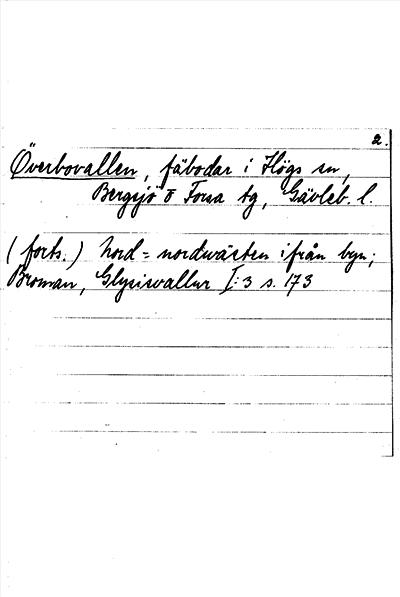 2.
Överbovallen, fäbodar i Högs sn,
Bergsjö o Forsa tg, Gävleb. l.
(forts.) Nord=nordwästen ifrån byn;
Broman, Glysisvallur I:3 s. 173